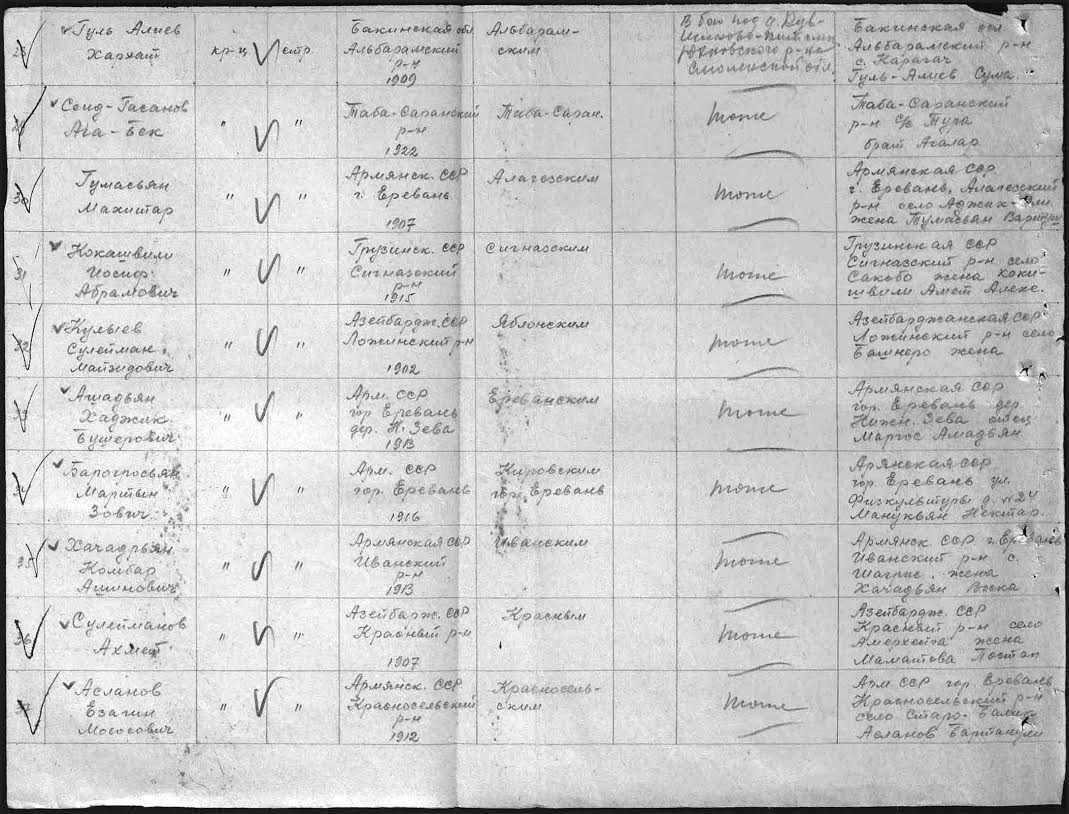 Гуль Алиев
Хархат
кр-ц
стр.
Бакинская обл
Альбарамский
р-н
1909
Альбарам-
ским
В бою под д.
Юхновского р-на
Смоленской обл.
Бакинская обл
Альбарамский р-н
с. Карагач
Гуль-Алиев Сума
Сеид-Гасанов
Ага-Бек
"
"
Таба-Саранский
р-н
1922
Таба-Саран.
тоже
Таба-Саранский
р-н с/с Тура
брат Агалар
30
Тумасьян
Махитар
"
"
Армянск. ССР
г. Ереван
1907
Алагезским
тоже
Армянская ССР
г. Еревань, Алагезский
р-н село
жена Тумасьян
31
Кокашвили
Иосиф
Абрамович
"
"
Грузинск. ССР
Сигназский
р-н
1915
Сигназским
тоже
Грузинская ССР
Сигназский р-н село
Сакобо жена Коки-
швили Амет Алекс.
32
Кулыев
Сулейман
Майзидович
"
"
Азейбардж. ССР
Ложинский р-н
1902
Яблонским
тоже
Азейбарджанская ССР
Ложинский р-н село
Башнеро жена
33
Амадьян
Хаджик
Бушерович
"
"
Арм. ССР
гор. Еревань
дер. Н. Зева
1913
Ереванским
тоже
Армянская ССР
гор. Еревань дер.
Нижн. Зева отец
Маргос Амадьян
34
Барогпосьян
Мартын
Зович
"
"
Арм. ССР
гор. Еревань
1916
Кировским
гор. Еревань
тоже
гор. Еревань ул.
Физкультуры д. №24
Манукьян Нектар.
35
Хачадрьян
Комбар
Ашинович
"
"
Армянская ССР
Иванский
р-н
1913
Иванским
тоже
Армянск. ССР г. Еревань
Иванский р-н с.
Шагрис. жена
Хачадьян Воска
36
Сулейманов
Ахмет
"
"
Азейбарж. ССР
Красный р-н
1907
Красным
тоже
Азейбардж. ССР
Красный р-н село
Амерхейта жена
Маматова Постап
37
Асланов
Езагин
Мососович
"
"
Армянск. ССР
Красносельский
р-н
1912
Красносель-
ским
тоже
Арм ССР гор. Еревань
Красносельский р-н
село Старо-
Асланов